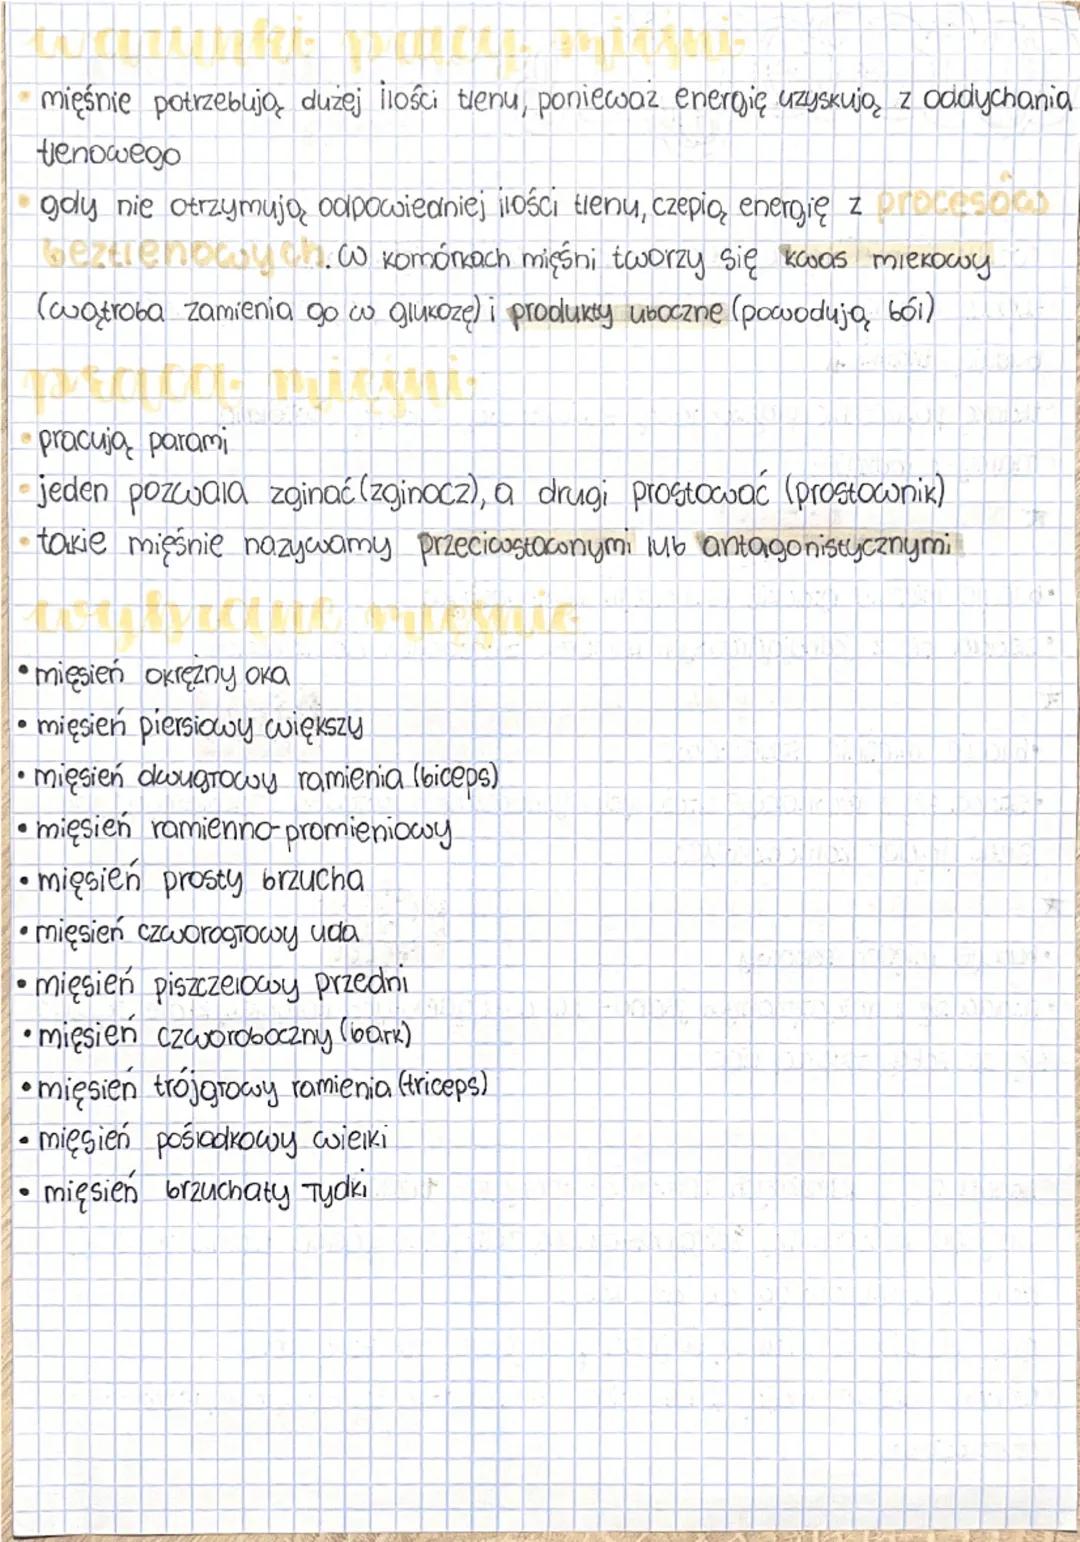 warunki pracy mięśni
• mięśnie potrzebują dużej ilości tlenu, ponieważ energię uzyskują z oddychania
tlenowego
• gdy nie otrzymują odpowiedniej ilości tlenu, czepią energię z procesów
beztlenowych. W komórkach mięśni tworzy się kwas mlekowy
(wątroba zamienia go w glukozę) i produkty uboczne (powodują ból)
praca mięśni
• pracują parami
• jeden pozwala zginać (zginacz), a drugi prostować (prostownik)
• takie mięśnie nazywamy przeciwstawnymi lub antagonistycznymi
wybrane mięśnie
• mięsień okrężny oka
• mięsień piersiowy większy
• mięsień dwugłowy ramienia (biceps)
• mięsień ramienno-promieniowy
• mięsień prosty brzucha
• mięsień czworogłowy uda
• mięsień piszczelowy przedni
• mięsień czworoboczny (bark)
• mięsień trójgłowy ramienia (triceps)
• mięsień pośladkowy wielki
• mięsień brzuchaty łydki